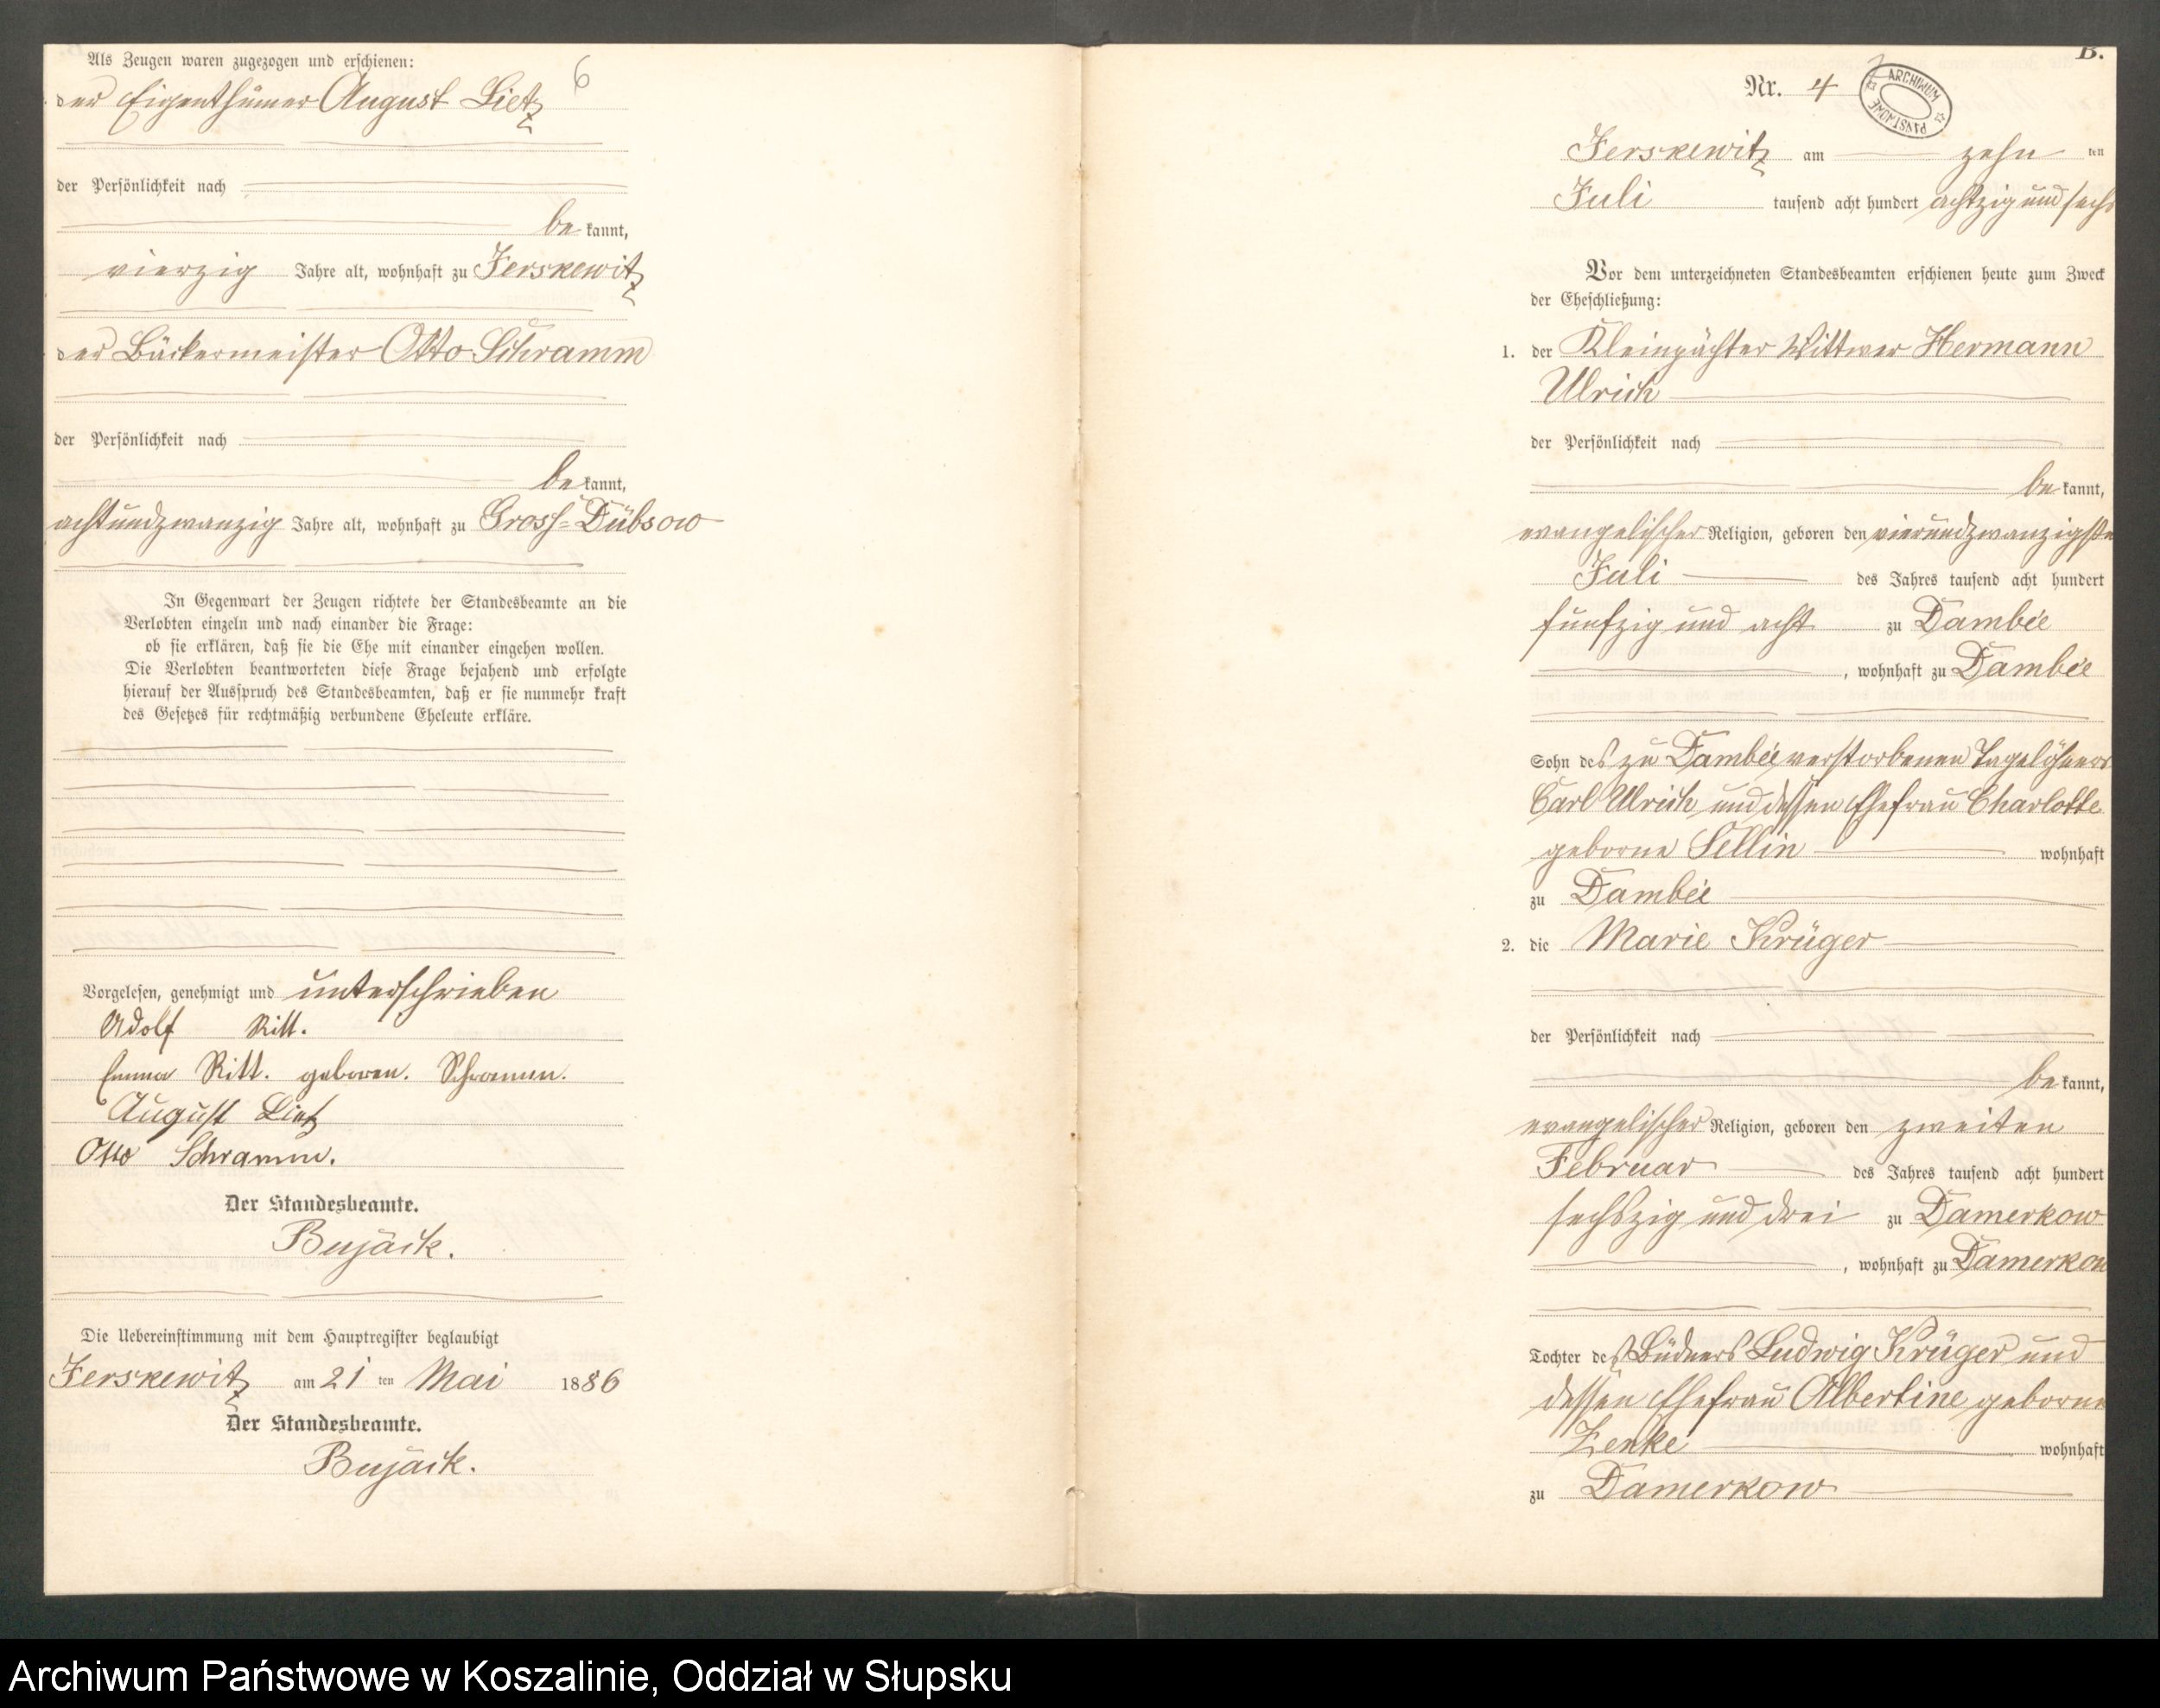 Als Zeugen waren zugezogen und erschienen:
6
der Eigenthümer August Lietz
der Persönlichkeit nach
be kannt,
vierzig Jahre alt, wohnhaft zu Jerskewitz
der Bäckermeister Otto Schramm
der Persönlichkeit nach
be kannt,
achtundzwanzig Jahre alt, wohnhaft zu Gross-Dübsow
In Gegenwart der Zeugen richtete der Standesbeamte an die
Verlobten einzeln und nach einander die Frage:
ob sie erklären, daß sie die Ehe mit einander eingehen wollen.
Die Verlobten beantworteten diese Frage bejahend und erfolgte
hierauf der Ausspruch des Standesbeamten, daß er sie nunmehr kraft
des Gesetzes für rechtmäßig verbundene Eheleute erkläre.
Vorgelesen, genehmigt und unterschrieben
Adolf Ritt.
Emma Ritt. geboren. Schramm.
August Lietz
Otto Schramm.
Der Standesbeamte.
Bujack.
Die Uebereinstimmung mit dem Hauptregister beglaubigt
Jerskewitz am 21 ten Mai 1886
Der Standesbeamte.
Bujack.
B.
Nr. 4
ARCHIWUM PAŃSTWOWE
Jerskewitz am zehn ten
Juli tausend acht hundert achtzig und sechs
Vor dem unterzeichneten Standesbeamten erschienen heute zum Zweck
der Eheschließung:
1. der Kleinpächter Wittwer Hermann
Ulrich
der Persönlichkeit nach
be kannt,
evangelischer Religion, geboren den vierundzwanzigsten
Juli des Jahres tausend acht hundert
funfzig und acht zu Dambée
, wohnhaft zu Dambée
Sohn des zu Dambée verstorbenen Tagelöhners
Carl Ulrich und dessen Ehefrau Charlotte
geborne Sellin wohnhaft
zu Dambée
2. die Marie Krüger
der Persönlichkeit nach
be kannt,
evangelischer Religion, geboren den zweiten
Februar des Jahres tausend acht hundert
sechszig und drei zu Damerkow
, wohnhaft zu Damerkow
Tochter des Büdners Ludwig Krüger und
dessen Ehefrau Albertine geborne
Zenke wohnhaft
zu Damerkow
Archiwum Państwowe w Koszalinie, Oddział w Słupsku